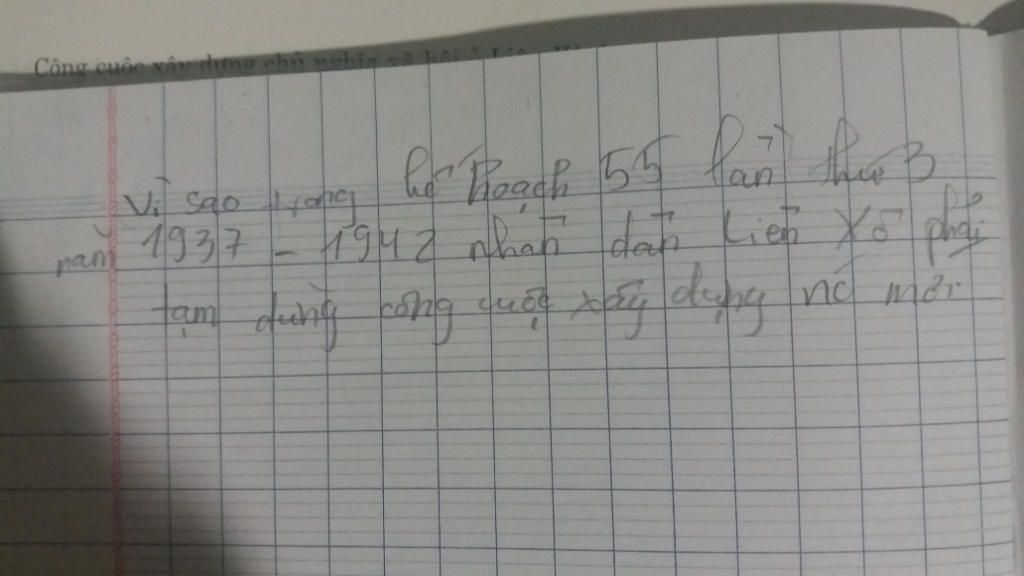 Công cuộc xây dựng chủ nghĩa xã hội
Vì sao trong kế hoạch 55 lần thứ 3
năm 1937 - 1942 nhân dân Liên Xô phải
tạm dừng công cuộc xây dựng nó mới